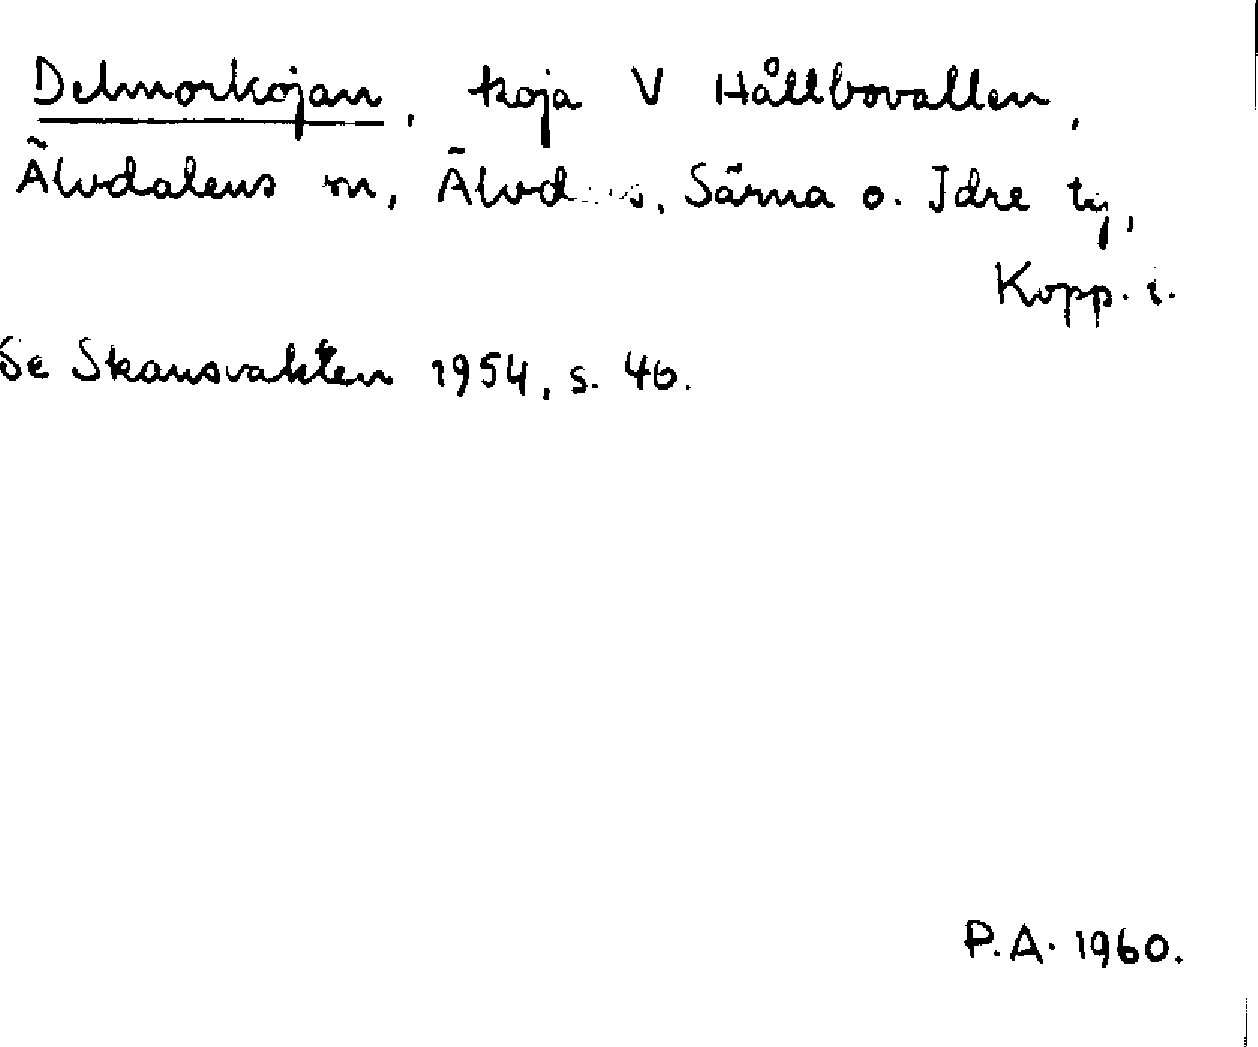 Delmorkojan, koja V Hållbovallen,
Älvdalens m, Älvd..s, Särna o. Idre tg,
Kopp. l.
Se Skansvakten 1954, s. 46.
P.A. 1960.